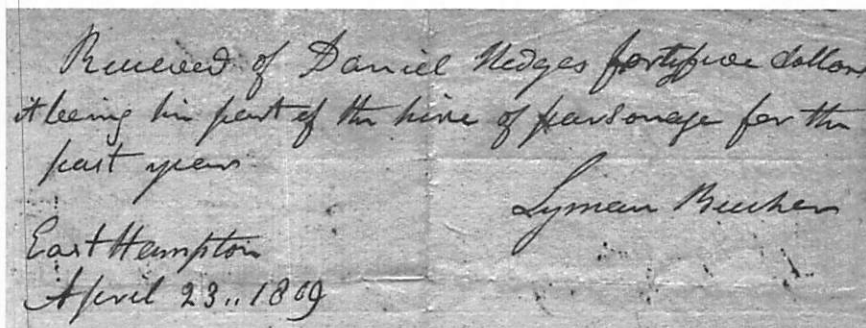 Received of Daniel Hedges fortyfive dollars
it being his part of the hire of parsonage for the
past year
Lyman Beecher
East Hampton
April 23,, 1809